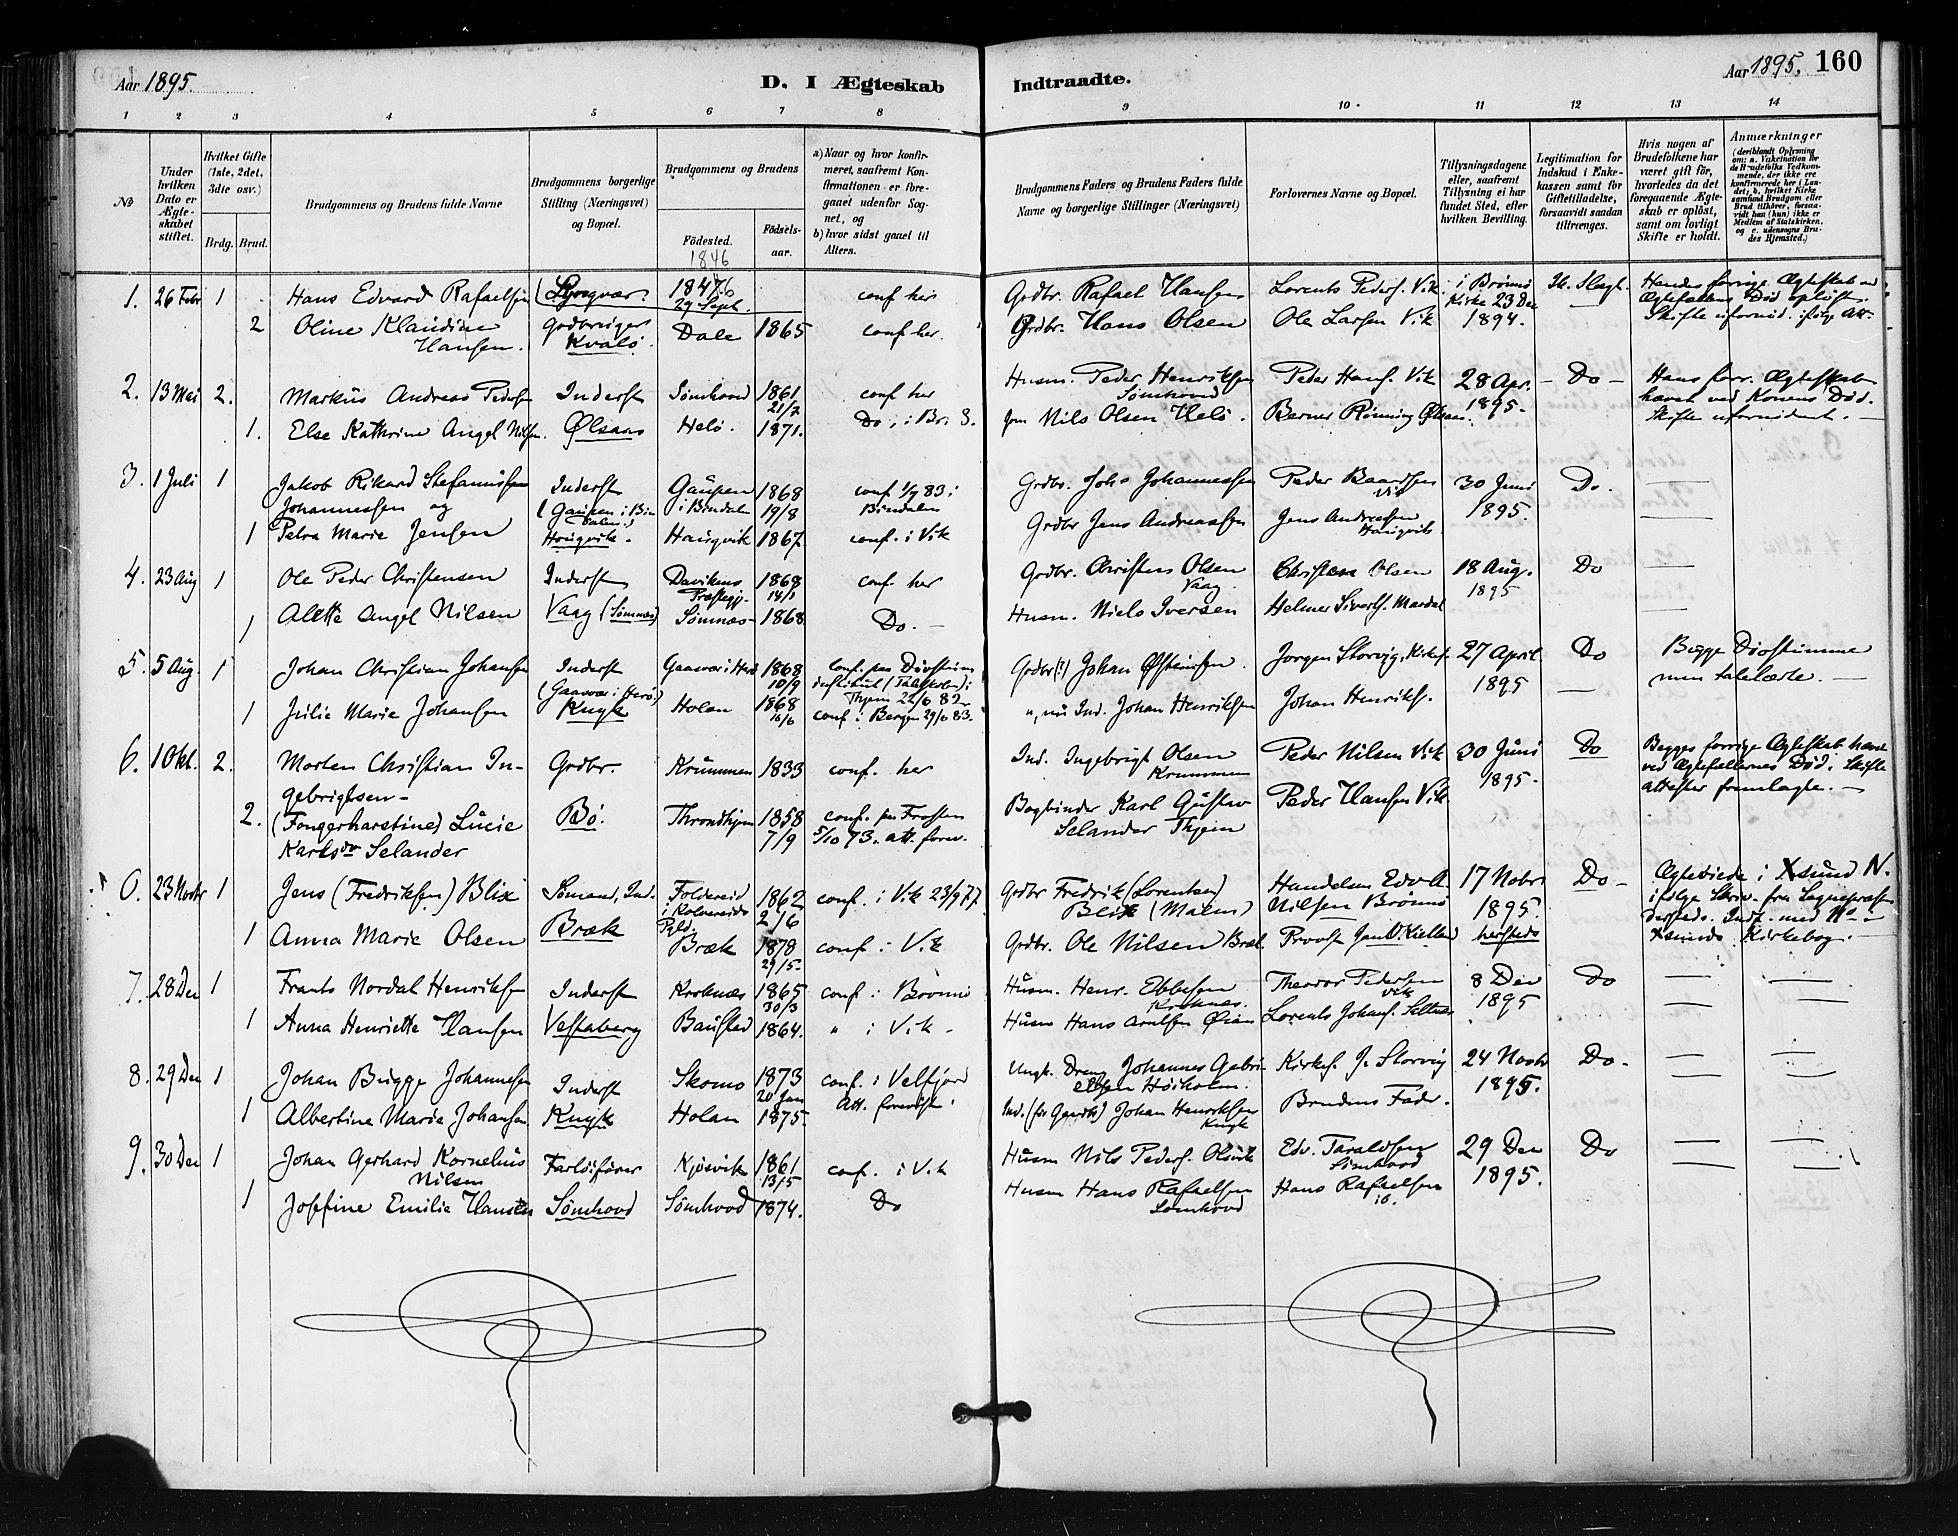 Aar 1895.
D. I Ægteskab Indtraadte.
Aar 1895. 160
1 2 3 4 5 6 7 8 9 10 11 12 13 14
№
Under hvilken Dato er Ægteskabet stiftet.
Hvilket Gifte (1ste, 2det, 3die osv.)
Brdg. Brud.
Brudgommens og Brudens fulde Navne
Brudgommens borgerlige Stilling (Næringsvei) og Bopæl.
Brudgommens og Brudens
Fødested. Fødselsaar.
1846
a) Naar og hvor konfirmeret, saafremt Konfirmationen er foregaaet udenfor Sognet, og
b) hvor sidst gaaet til Alters.
Brudgommens Faders og Brudens Faders fulde Navne og borgerlige Stillinger (Næringsvei)
Forlovernes Navne og Bopæl.
Tillysningsdagene eller, saafremt Tillysning ei har fundet Sted, efter hvilken Bevilling.
Legitimation for Indskud i Enkekassen samt for Giftetilladelse, forsaavidt saadan tiltrænges.
Hvis nogen af Brudefolkene har været gift før, hvorledes da det foregaaende Ægteskab er opløst, samt om lovligt Skifte er holdt.
Anmærkninger (deriblandt Oplysning om: a. Vakcination for de Brudefolks Vedkommende, der ikke ere konfirmerede her i Landet; b. hvilket Kirkesamfund Brudgom eller Brud tilhører, forsaavidt han (hun) ikke er Medlem af Statskirken, og c. udensogns Brudes Hjemsted.)
1. 26 Febr 1 Hans Edvard Rafaelsen 1847 29 Sept. conf her Grdbr. Rafael Hansen Lorents Peders. Vik i Brønnø Kirke 23 Dec 1894. Skifte uformid.
2 Oline Klaudine Hansen. Grdbruger Kvalø. Dale 1865 conf her. Grdbr. Hans Olsen Ole Larsen Vik
2. 13 Mai 2. Markus Andreas Peders Inderst Sømhovd 1861 21/7 conf her Husm. Peder Henriksen Sømhovd Peder Hans. Vik 28 Apr. 1895. Do Hans forr. Ægteskab hævet ved Konens Død. Skifte uformident.
1. Else Kathrine Angel Nilsen. Ølsaas Helø. 1871. Do, i Br. S. Nils Olsen Helø. Berner Rønning
3. 1 Juli 1 Jakob Rikard Stefanussen Johannessen og Inderst (Gaupen i Bindalen) Gaupen i Bindalen 1868 19/8 conf 1/7 83 i Bindalen Grdbr. Johs Johannessen Peder Baardsen Vik 30 Juni 1895. Do.
1 Petra Marie Jensen Hougvik. Haugvik 1867. conf. i Vik Grdbr Jens Andreassen Jens Andreasen Haugvik
4. 23 Aug 1 Ole Peder Christensen Inderst Davikens Præstegj. 1868 14/1 conf her Grdbr. Christen Olsen Vaag Christen Olsen 18 Aug. 1895 Do
1 Alette Angel Nilsen Vaag (Sømnæs) Sømnæs 1868 Do. Husm. Niels Iversen Helmer Siverts. Mardal
5. 5 Aug. 1 Johan Christian Johansen Inderst (Gaasvær i Herø) Gaasvær i Herø 1868 10/9 conf. paa Døvstummeinstitut (Talesk.) i Thjem 22/6 82 Grdbr(?) Johan Østensen Jørgen Storvig, Kirkes. 27 April 1895 Do Begge Døvstumme men talelærte.
1 Julie Marie Johansen Knyk Holan 1868 conf i Bergen 29/6 83. „, nu Ind. Johan Henriksen Johan Henriks.
6. 1 Okt. 2. Morten Christian Ingebrigtsen Grdbr. Krummen 1833 conf. her Ind. Ingebrigt Olsen Krummen Peder Nilsen Vik 30 Juni 1895. Do Begges forrige Ægteskab hævet ved Ægtefællernes Død. Skifteattester fremlagte.
2. Lucie Karlsdr Selander Bø. Throndhjem 1858 7/9 5/10 73. Bogbinder Karl Gustav Selander Thjem Peder Hansen Vik.
0. 23 Novbr 1 Jens (Fredriksen) Blix Sømand, Ind. Foldereid i Kolvereids Pgld. 1862 2/6 conf. i Vik 23/9 77 Grdbr Fredrik (Lorentsen) Blix (Malm) Handelsm Edv A. Nilsen Brønnø 17 Nobr 1895. Do Ægteviede i Xsund N. ifølge Skriv. fra Sognepræsten dersteds. Indf. med No i Xsunds Kirkebog.
1 Anna Marie Olsen Bræk Bræk 1878 29/5 conf i Vik Grdbr. Ole Nilsen Bræk Provst Kielland hersteds
7. 28 Dec 1 Frants Nordal Henriksen Inderst Kroknæs 1865 30/3 conf i Brønnø Husm. Henr. Ebbesen Kroknæs. Theodor Pedersen Vik 8 Dec 1895 Do
1 Anna Henriette Hansen Vestaberg Baustad 1864. „ i Vik Husm Hans Arntsen Øian Lorents Johans.
8. 29 Dec 1 Johan Brygge Johannesen Inderst Skomo 1873 20 Jan conf. i Velfjord Att. forevist. Ungk. Dreng Johannes Gabrielsen Høiholm. Kirkes. J. Storvig 24 Novbr 1895. Do.
1 Albertine Marie Johansen Knyk Holan 1875. Ind. (før Gaardb) Johan Henriksen Knyk Brudens Fader.
9. 30 Dec 1 Johan Gerhard Kornelius Nilsen Kjøsvik 1861 13/5 conf. i Vik Husm Nils Peders. Edv. Taraldsen Sømhovd 29 Dec 1895. Do
1 Josefine Emilie Hansen Sømhovd Sømhovd 1874. Do Husm Hans Rafaelsen Sømhovd Hans Rafaelsen ib.